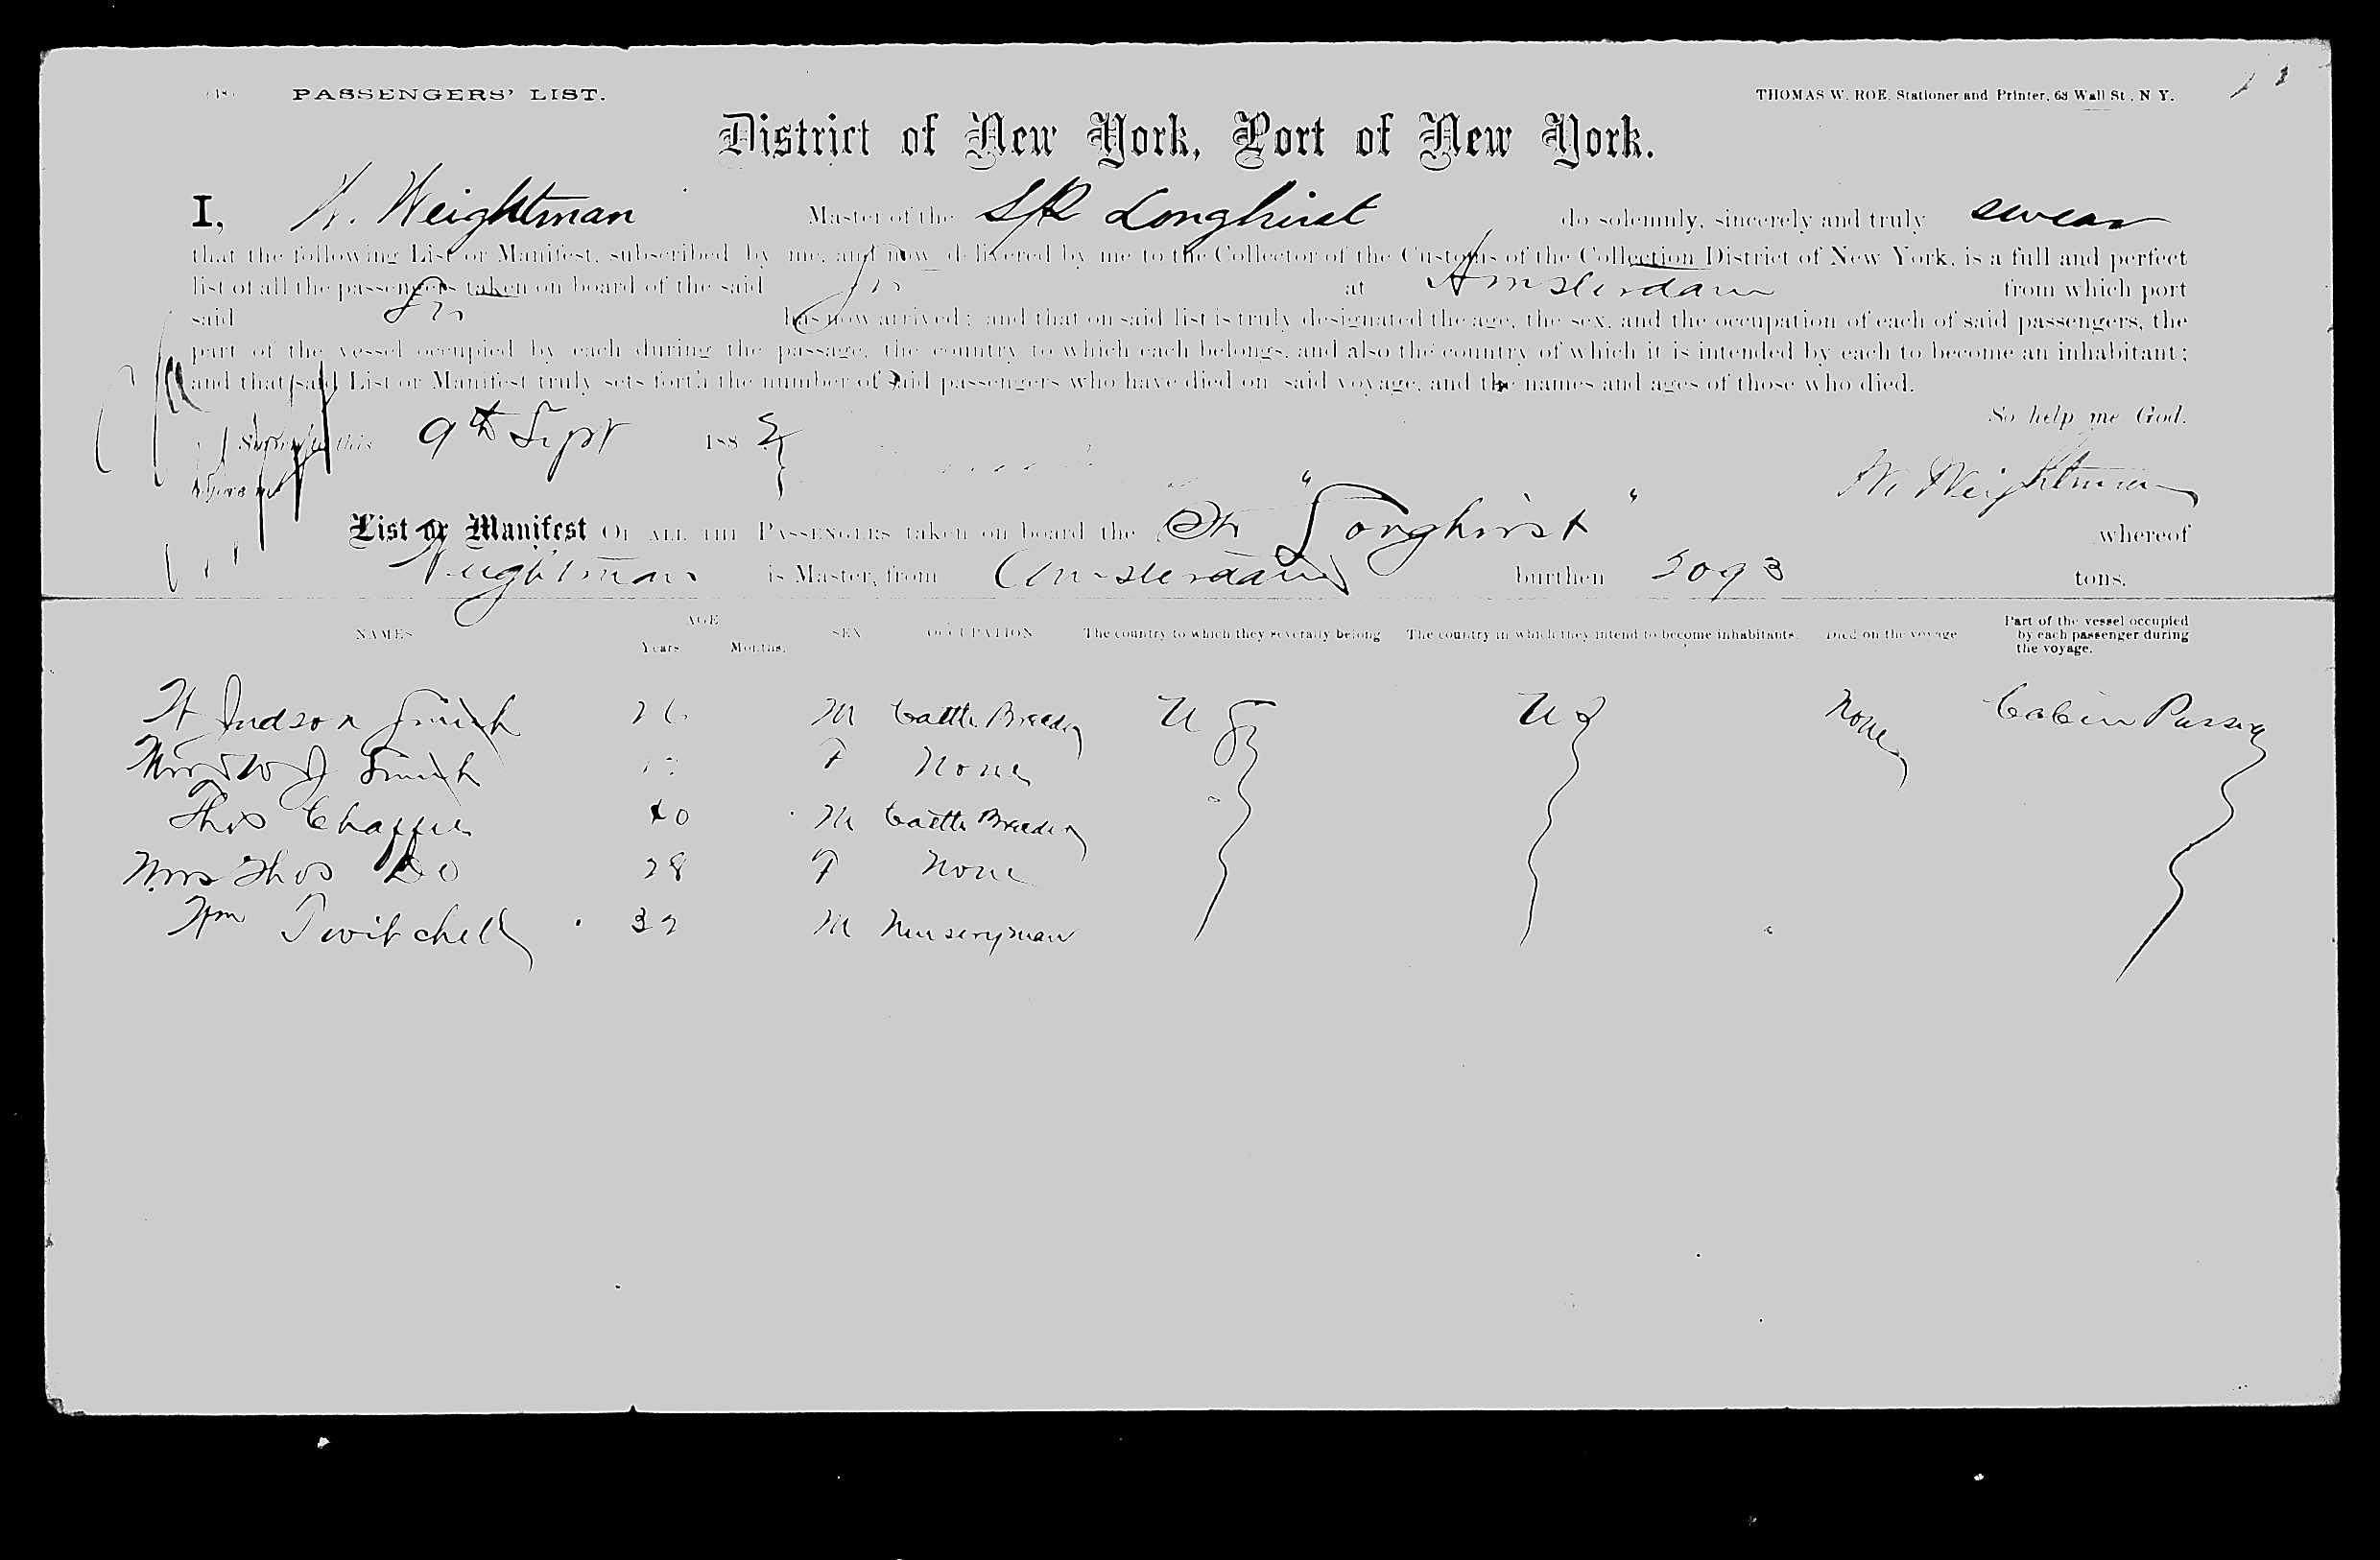 PASSENGERS' LIST.
THOMAS W. ROE, Stationer and Printer, 63 Wall St., N. Y.
District of New York, Port of New York.
I, W. Weightman Master of the S/R Longhirst do solemnly, sincerely and truly swear
that the following List or Manifest, subscribed by me, and now delivered by me to the Collector of the Customs of the Collection District of New York, is a full and perfect
list of all the passengers taken on board of the said Str at Amsterdam from which port
said Str has now arrived; and that on said list is truly designated the age, the sex, and the occupation of each of said passengers, the
part of the vessel occupied by each during the passage, the country to which each belongs, and also the country of which it is intended by each to become an inhabitant;
and that said List or Manifest truly sets forth the number of said passengers who have died on said voyage, and the names and ages of those who died.
So help me God.
Sworn to this 9th Sept 188
before me W. Weightman
List or Manifest OF ALL THE PASSENGERS taken on board the Str "Longhirst" whereof
Weightman is Master, from Amsterdam burthen 2093 tons.
NAMES AGE Years Months. SEX OCCUPATION The country to which they severally belong The country in which they intend to become inhabitants. Died on the voyage Part of the vessel occupied by each passenger during the voyage.
W Judson Smith 26 M Cattle Breeder U S U S None Cabin Passen
Mrs W J Smith F None
Thos Chaffee 40 M Cattle Breeder
Mrs Thos Do 28 F None
Wm Twitchell 32 M Nurseryman